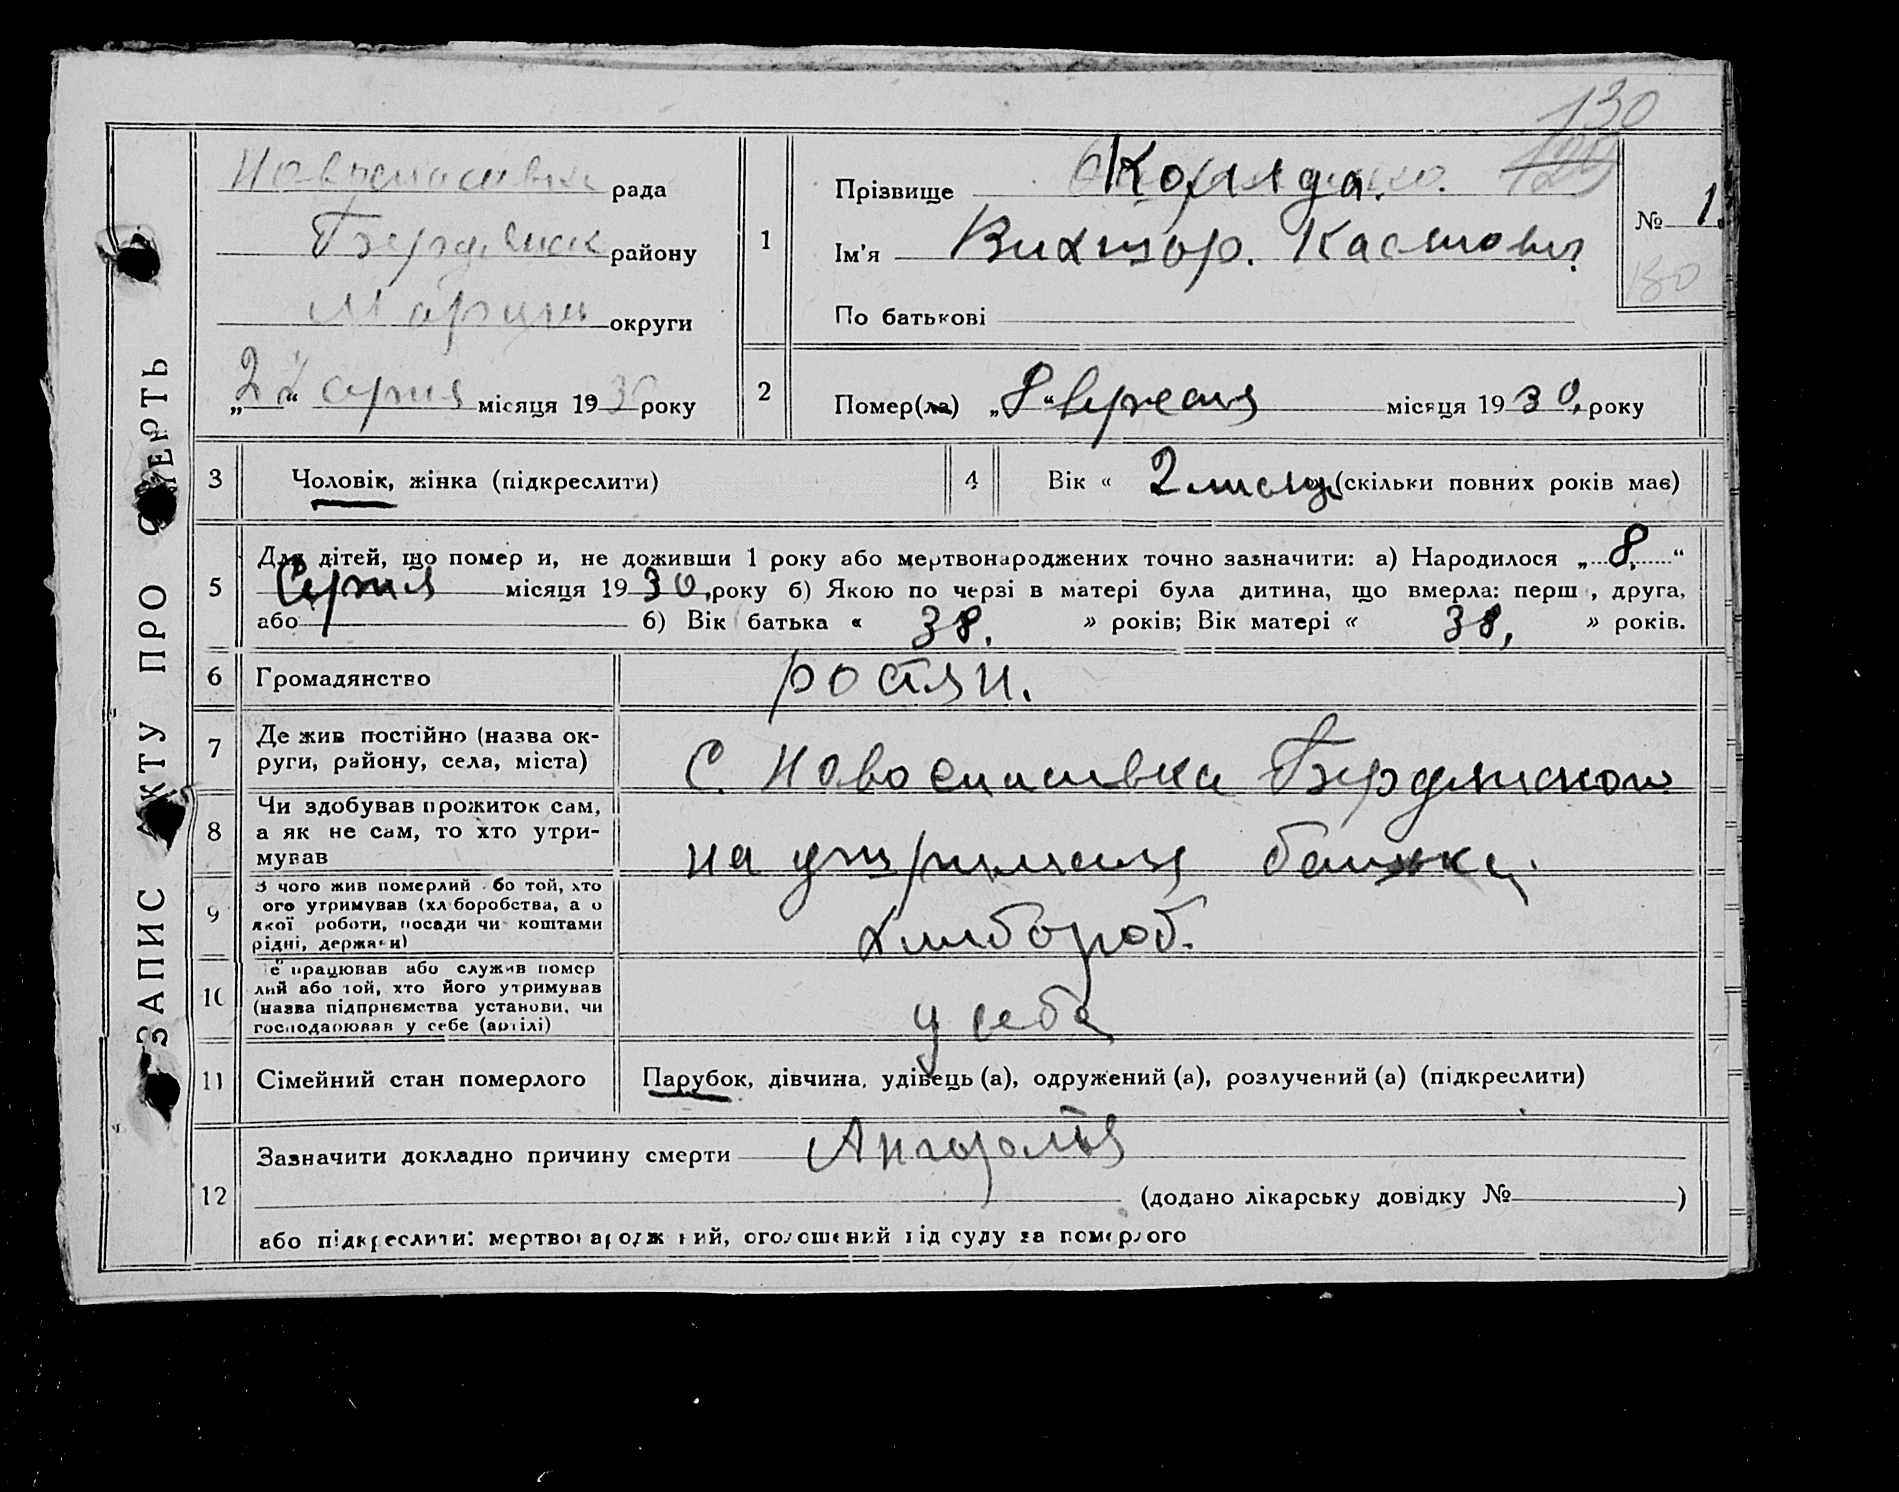 130
ЗАПИС АКТУ ПРО СМЕРТЬ
Новоспасівка рада
Бердянск району
округи
„2 “ серпня місяця 1930 року
1
Прізвище Коляда.
Ім'я Виктор. Касянович
По батькові
№ 1.
130
2
Помер(ла) „8“ вересня місяця 1930, року
3 Чоловік, жінка (підкреслити)
4 Вік « 2 місяц (скільки повних років має)
5
Для дітей, що помер и, не доживши 1 року або мертвонароджених точно зазначити: а) Народилося „8.“
Серпня місяця 1930, року б) Якою по черзі в матері була дитина, що вмерла: перш , друга,
або б) Вік батька « 38. » років; Вік матері « 38, » років.
6 Громадянство
7 Де жив постійно (назва ок-
руги, району, села, міста)
С. Новоспасівка Бердянского
8 Чи здобував прожиток сам,
а як не сам, то хто утри-
мував
на утриманя батька
9 З чого жив померлий або той, хто
ого утримував (хліборобства, а о
якої роботи, посади чи коштами
рідні, держави)
Хлибороб.
10 е працював або служив помер
лий або той, хто його утримував
(назва підприємства установи, чи
господарював у себе (артілі)
у себе
11 Сімейний стан померлого
Парубок, дівчина, удівець (а), одружений (а), розлучений (а) (підкреслити)
12
Зазначити докладно причину смерти
(додано лікарську довідку № )
або підкреслити: мертвонароджений, оголошений від суду за померлого